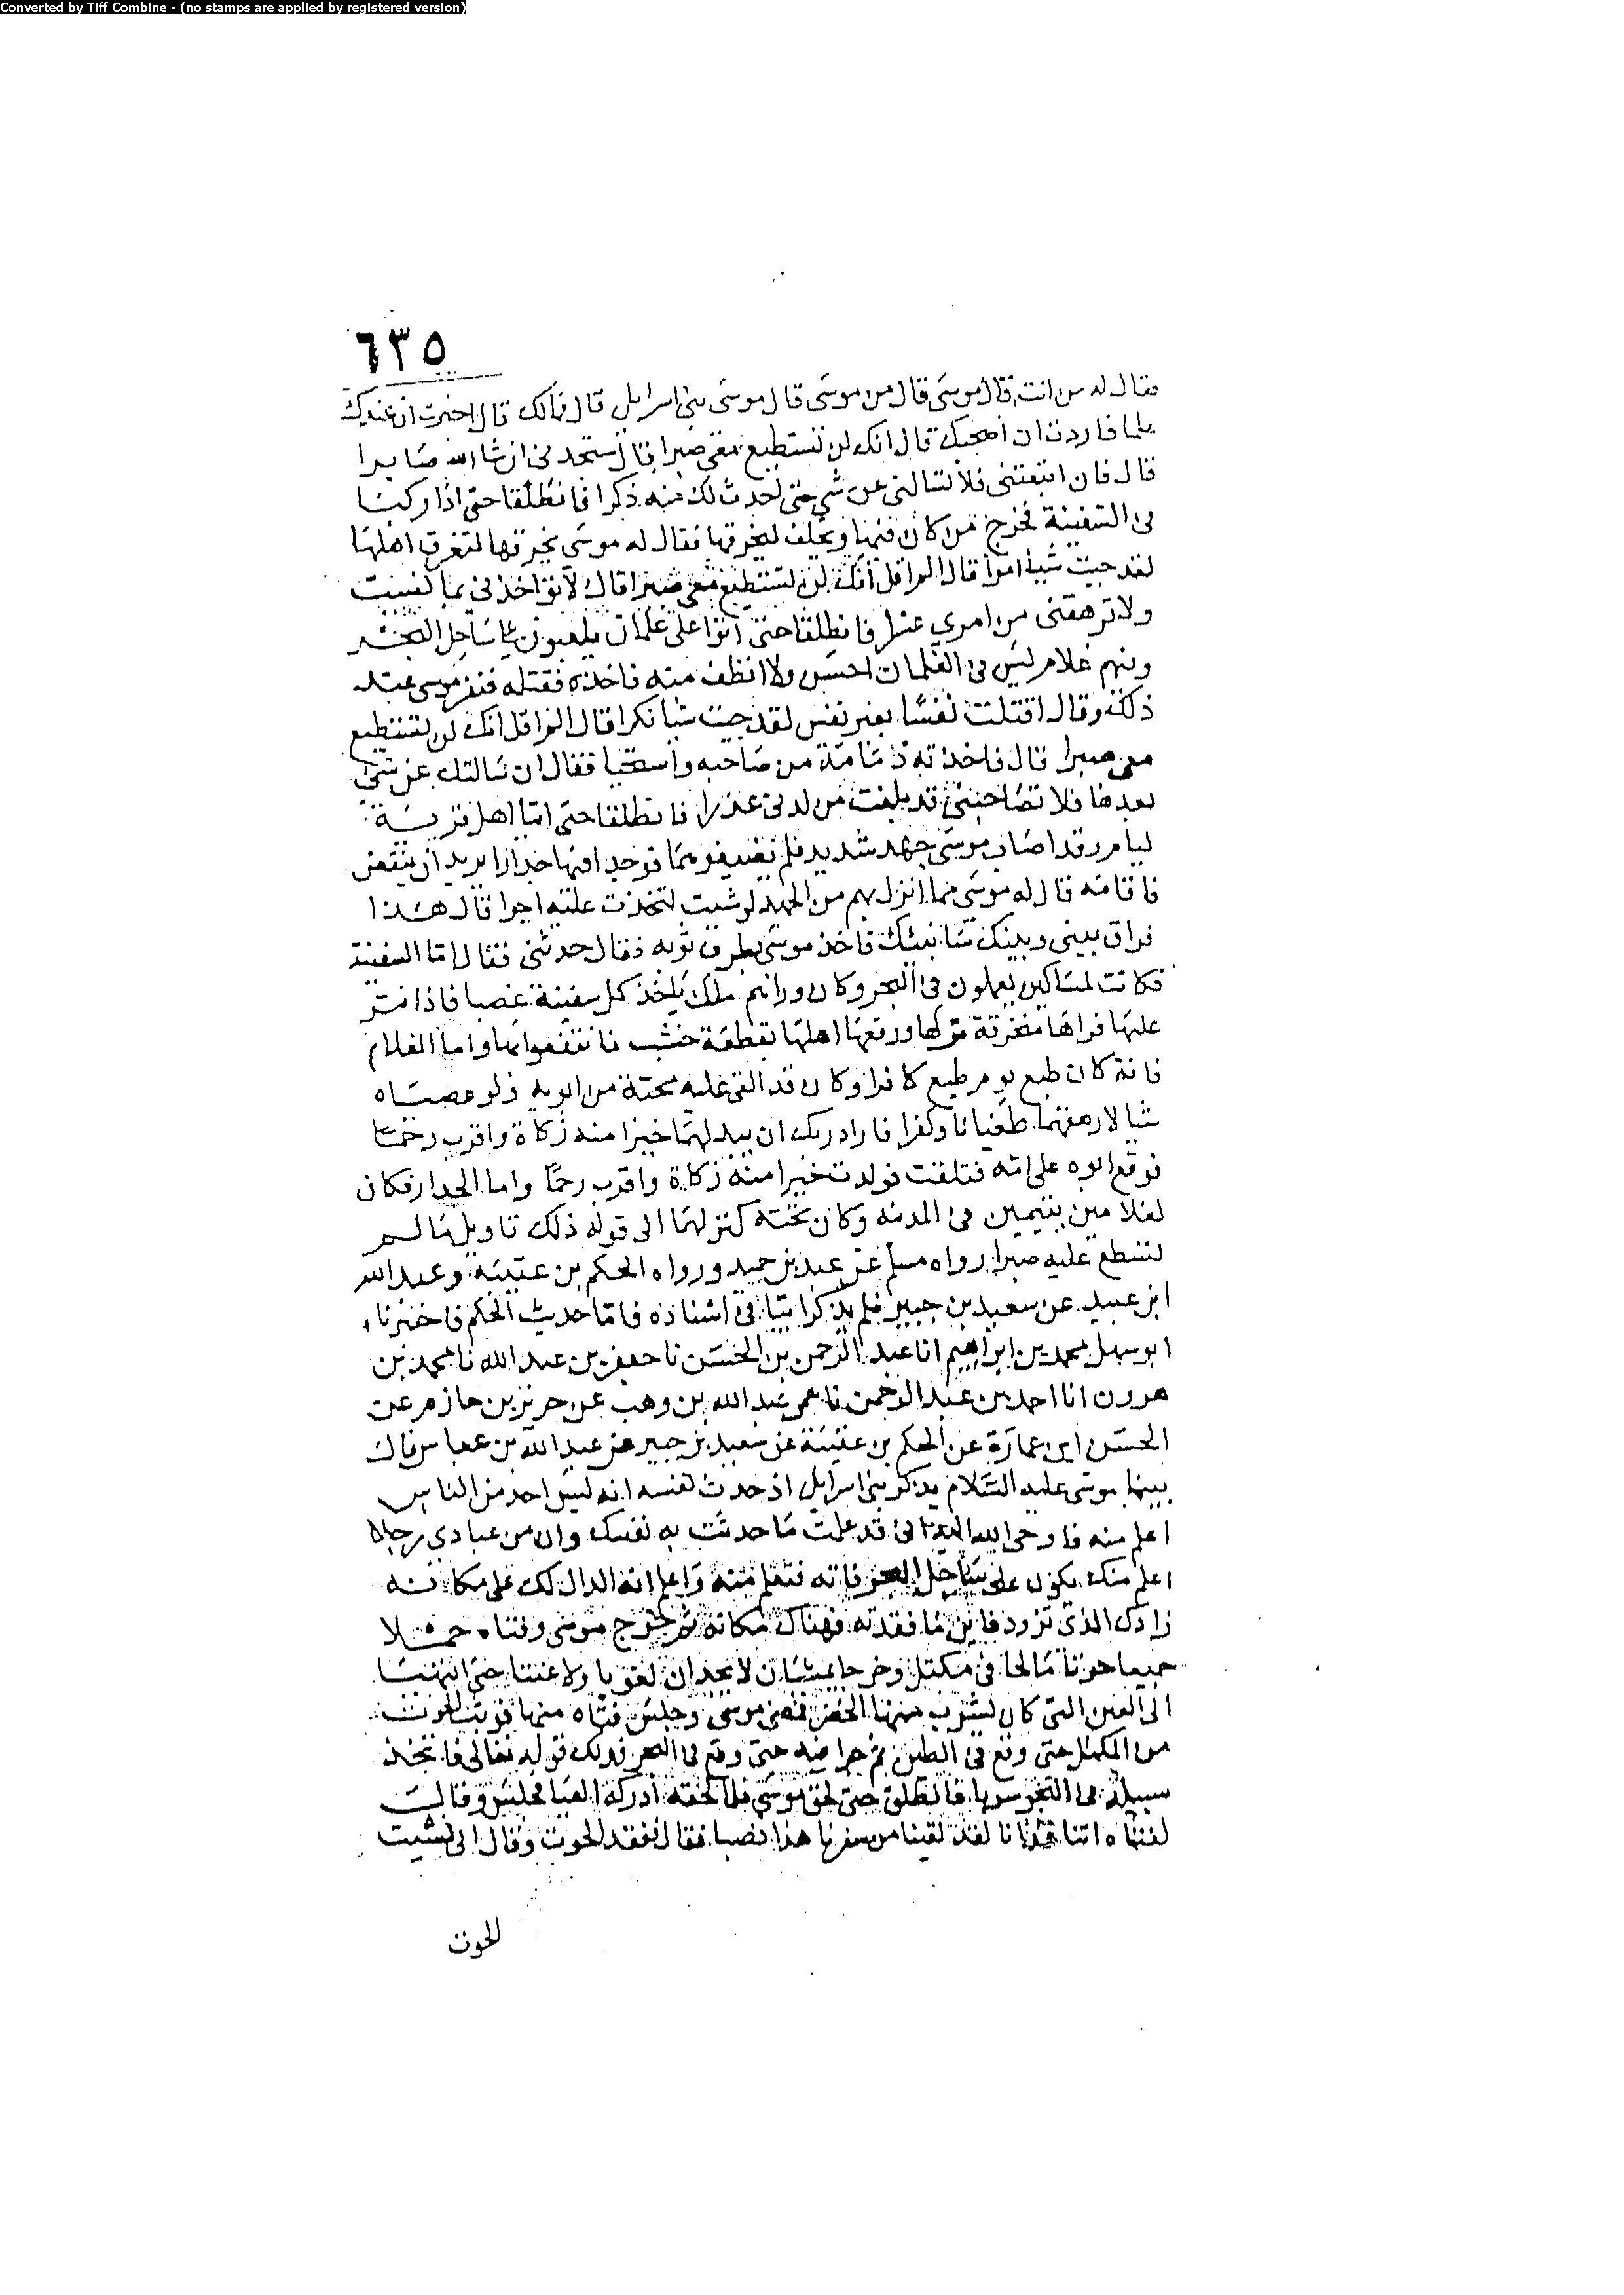 Converted by Tiff Combine - (no stamps are applied by registered version)
٦٣٥
فقال له من انت قال موسى قال من موسى قال موسى بني اسرايل قال فمالك قال اخبرت ان عندك
علما فاردت ان اصحبك قال انك لن تستطيع معي صبرا قال ستجدني ان شا الله صابرا
قال فان اتبعتني فلا تسالني عن شي حتى احدث لك منه ذكرا فانطلقا حتى اذا ركبا
في السفينة فخرج من كان فيها وتخلف ليخرقها فقال له موسى تخرقها لتغرق اهلها
لقد جيت شيا امرا قال الم اقل انك لن تستطيع معي صبرا قال لا تواخذني بما نسيت
ولا ترهقني من امري عسرا فانطلقا حتى اتوا على غلمان يلعبون على ساحل البحر
وفيهم غلام ليس في الغلمان احسن ولا انظف منه فاخذه فقتله فنفر موسى عند
ذلك وقال اقتلت نفسا بغير نفس لقد جيت شيا نكرا قال الم اقل انك لن تستطيع
معي صبرا قال فاخذته ذمامة من صاحبه واستحيا فقال ان سالتك عن شي
بعدها فلا تصاحبني قد بلغت من لدني عذرا فانطلقا حتى اتيا اهل قرية
ليام وقد اصاب موسى جهد شديد فلم يضيفوهما فوجدا فيها جدارا يريد ان ينقض
فاقامه قال له موسى مما انزل بهم من الجهد لو شيت لتخذت عليه اجرا قال هذا
فراق بيني وبينك سانبئك فاخذ موسى بطرف ثوبه فقال حدثني فقال اما السفينة
فكانت لمساكين يعملون في البحر وكان وراهم ملك ياخذ كل سفينة غصبا فاذا مر
عليها فراها منخرقة تركها ورقعها اهلها بقطعة خشب فانتفعوا بها واما الغلام
فانه كان طبع يوم طبع كافرا وكان قد القى عليه محبة من ابويه ولو عصياه
شيا لارهقهما طغيانا وكفرا فاراد ربك ان يبدلهما خيرا منه زكاة واقرب رحما
فوقع ابوه على امه فتلقت فولدت خيرا منه زكاة واقرب رحما واما الجدار فكان
لغلامين يتيمين في المدينه وكان تحته كنز لهما الى قوله ذلك تاويل ما لم
تسطع عليه صبرا رواه مسلم عن عبد بن حميد ورواه الحكم بن عتيبه وعبد الله
ابن عبيد عن سعيد بن جبير فلم يذكرا ابيا في اسناده فاما حديث الحكم فاخبرناه
ابو سهل محمد بن ابراهيم انا عبد الرحمن بن الحسن نا جعفر بن عبد الله نا محمد بن
هرون انا احمد بن عبد الرحمن نا عمي عبد الله بن وهب عن جرير بن حازم عن
الحسن ابن عمارة عن الحكم بن عتيبة عن سعيد بن جبير عن عبد الله بن عباس قال
بينما موسى عليه السلام يذكر بني اسرايل اذ حدث نفسه انه ليس احد من الناس
اعلم منه فاوحى الله اليه اني قد علمت ما حدثت به نفسك وان من عبادي رجلا
اعلم منك يكون على ساحل البحر فاته فتعلم منه واعلم انه الدال لك على مكانه
زادك الذي تزود فاين ما فقدته فهناك مكانه ثم خرج موسى وفتاه حملا
جميعا حوتا مالحا في مكتل وخرجا يمشيان لا يجدان لغوبا ولا عنتا حتى انتهيا
الى العين التي كان يشرب منها الخضر فمضى موسى وجلس فتاه منها فوثب الحوت
من المكتل حتى وقع في الطين ثم جرا فيه حتى وقع في البحر فذلك قوله تعالى فاتخذ
سبيله في البحر سربا فانطلق حتى لحق موسى فلما لحقه ادركه العيا فجلس وقال
لفتاه اتنا غدانا لقد لقينا من سفرنا هذا نصبا فقال ففقد الحوت وقال اني نسيت
الحوت